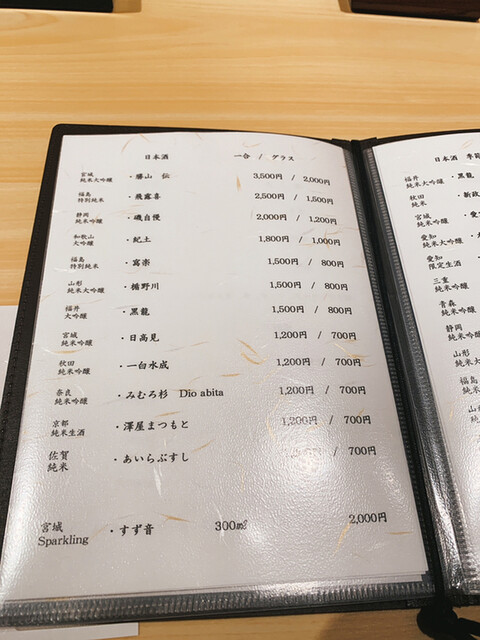 日本酒 一合 / グラス
宮城
純米大吟醸 ・勝山 伝 3,500円 / 2,000円
福島
特別純米 ・飛露喜 2,500円 / 1,500円
静岡
純米大吟醸 ・磯自慢 2,000円 / 1,200円
和歌山
大吟醸 ・紀土 1,800円 / 1,000円
福島
特別純米 ・寫楽 1,500円 / 800円
山形
純米大吟醸 ・楯野川 1,500円 / 800円
福井
大吟醸 ・黒龍 1,500円 / 800円
宮城
純米吟醸 ・日高見 1,200円 / 700円
秋田
純米吟醸 ・一白水成 1,200円 / 700円
奈良
純米吟醸 ・みむろ杉 Dio abita 1,200円 / 700円
京都
純米生酒 ・澤屋まつもと 1,200円 / 700円
佐賀
純米 ・あいらぶすし / 700円
宮城
Sparkling ・すず音 300㎖ 2,000円
日本酒 季節
福井
純米吟醸 ・黒龍
秋田
純米 ・新政
宮城
純米吟醸 ・愛
愛知
純米吟醸
愛知
限定生酒
三重
純米吟醸
青森
純米吟醸
静岡
純米吟醸
山形
純米吟醸
福島
純米吟醸
山形